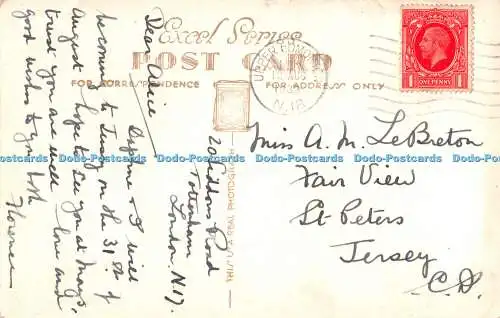 Excel Series
POST CARD
FOR CORRESPONDENCE
FOR ADDRESS ONLY
N.18
ONE PENNY
1 1
20 Siddons Road
Tottenham
London. N17.
Dear Alice
& I will
be coming to Jersey on the 31st of
August hope to see you at May's,
trust you are well love and
good wishes to you both
Florence
THIS IS A REAL PHOTOGRAPH
Miss A. M. LeBreton
Fair View
St Peters
Jersey
C.I.
Dodo-Postcards Dodo-Postcards Dodo-Postcards Dodo-Postcards Dodo-Postcards Dodo-Postcards